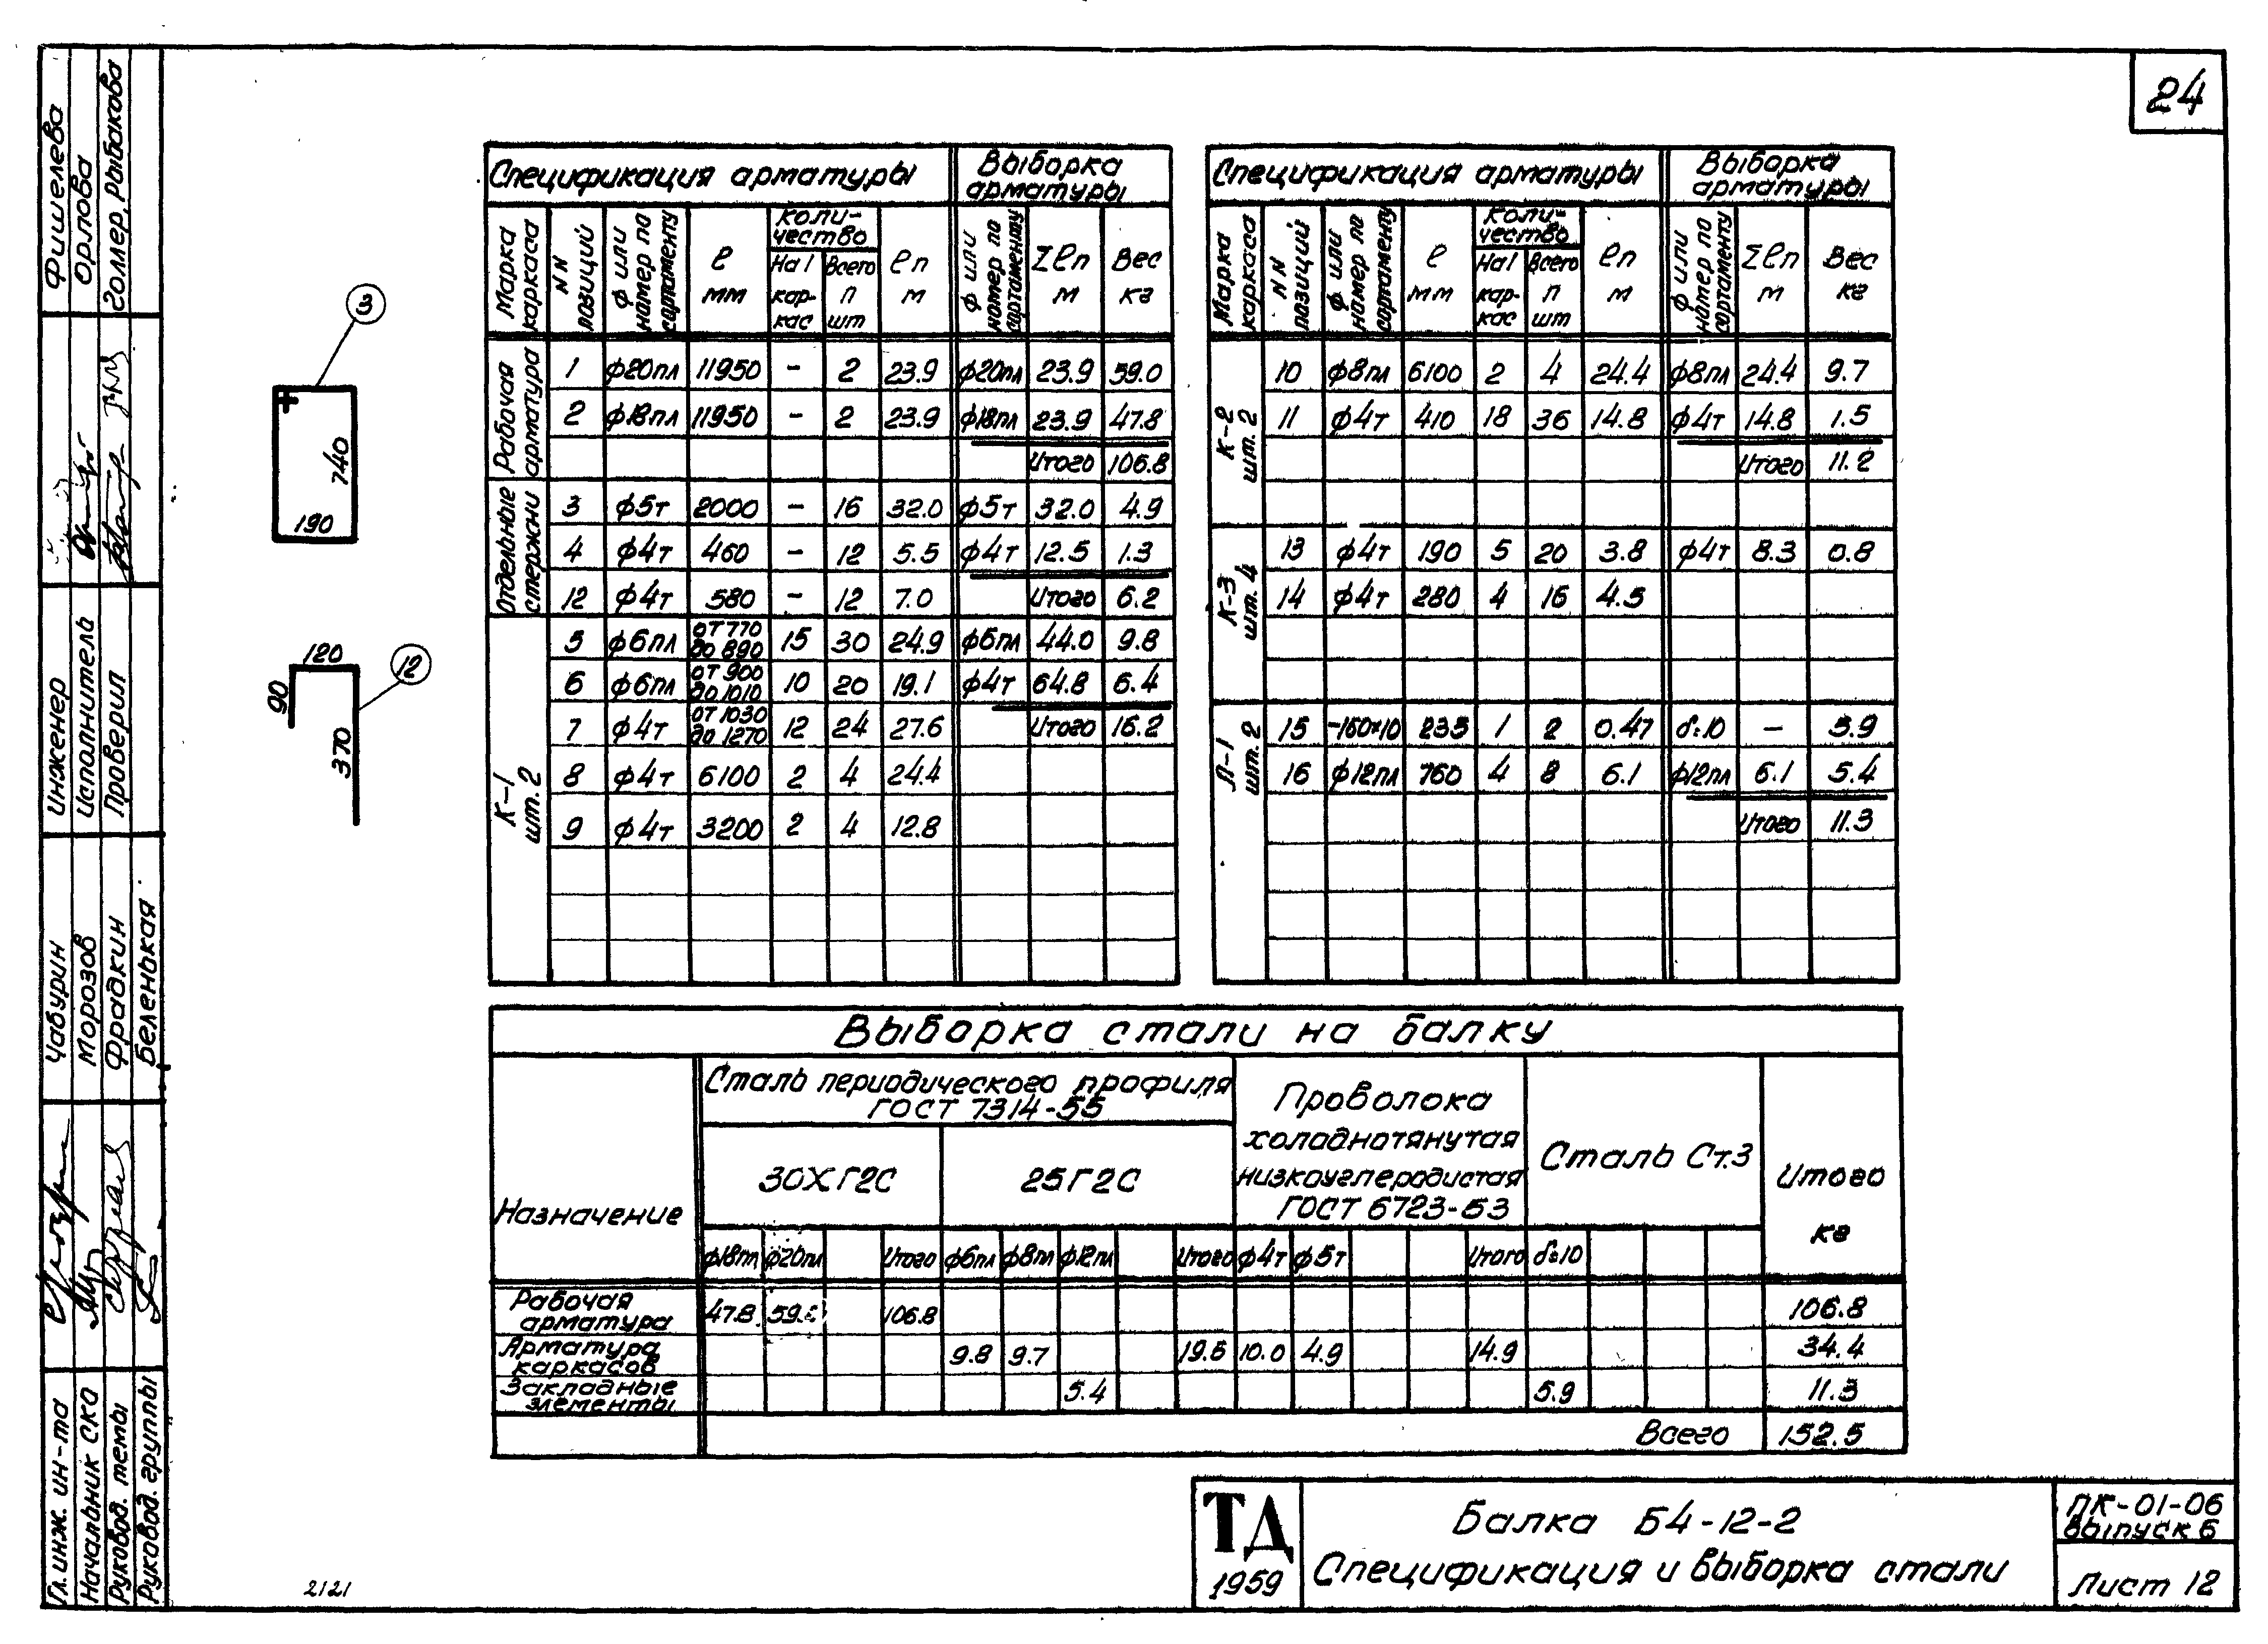 24
Фишелева
Орлова
Голлер, Рыбакова
Инженер
Исполнитель
Проверил
Чабурин
Морозов
Фрадкин
Беленькая
Гл. инж. ин-та
Начальник СКО
Руковод. темы
Руковод. группы
3
740
190
120
12
90
370
Спецификация арматуры Выборка арматуры
Марка каркаса NN позиций ф или номер по сортаменту ℓ мм Количество На 1 каркас Всего п шт ℓп м ф или номер по сортаменту Σℓп м Вес кг
Рабочая арматура
1 ф20пл 11950 - 2 23.9 ф20пл 23.9 59.0
2 ф18пл 11950 - 2 23.9 ф18пл 23.9 47.8
Итого 106.8
Отдельные стержни
3 ф5т 2000 - 16 32.0 ф5т 32.0 4.9
4 ф4т 460 - 12 5.5 ф4т 12.5 1.3
12 ф4т 580 - 12 7.0 Итого 6.2
К-1 шт. 2
5 ф6пл от 770 до 890 15 30 24.9 ф6пл 44.0 9.8
6 ф6пл от 900 до 1010 10 20 19.1 ф4т 64.8 6.4
7 ф4т от 1030 до 1270 12 24 27.6 Итого 16.2
8 ф4т 6100 2 4 24.4
9 ф4т 3200 2 4 12.8
Спецификация арматуры Выборка арматуры
Марка каркаса NN позиций ф или номер по сортаменту ℓ мм Количество На 1 каркас Всего п шт ℓп м ф или номер по сортаменту Σℓп м Вес кг
К-2 шт. 2
10 ф8пл 6100 2 4 24.4 ф8пл 24.4 9.7
11 ф4т 410 18 36 14.8 ф4т 14.8 1.5
Итого 11.2
К-3 шт. 4
13 ф4т 190 5 20 3.8 ф4т 8.3 0.8
14 ф4т 280 4 16 4.5
Л-1 шт. 2
15 -160×10 235 1 2 0.47 δ=10 - 5.9
16 ф12пл 760 4 8 6.1 ф12пл 6.1 5.4
Итого 11.3
Выборка стали на балку
Назначение
Сталь периодического профиля
ГОСТ 7314-55
30ХГ2С 25Г2С
Проволока
холоднотянутая
низкоуглеродистая
ГОСТ 6723-53
Сталь Ст.3
Итого
кг
ф18пл ф20пл Итого ф6пл ф8пл ф12пл Итого ф4т ф5т Итого δ=10
Рабочая арматура 47.8 106.8 106.8
Арматура каркасов 9.8 9.7 19.5 10.0 4.9 14.9 34.4
Закладные элементы 5.4 5.9 11.3
Всего 152.5
ТД
1959
Балка Б4-12-2
Спецификация и выборка стали
ПК-01-06
выпуск 6
Лист 12
2121